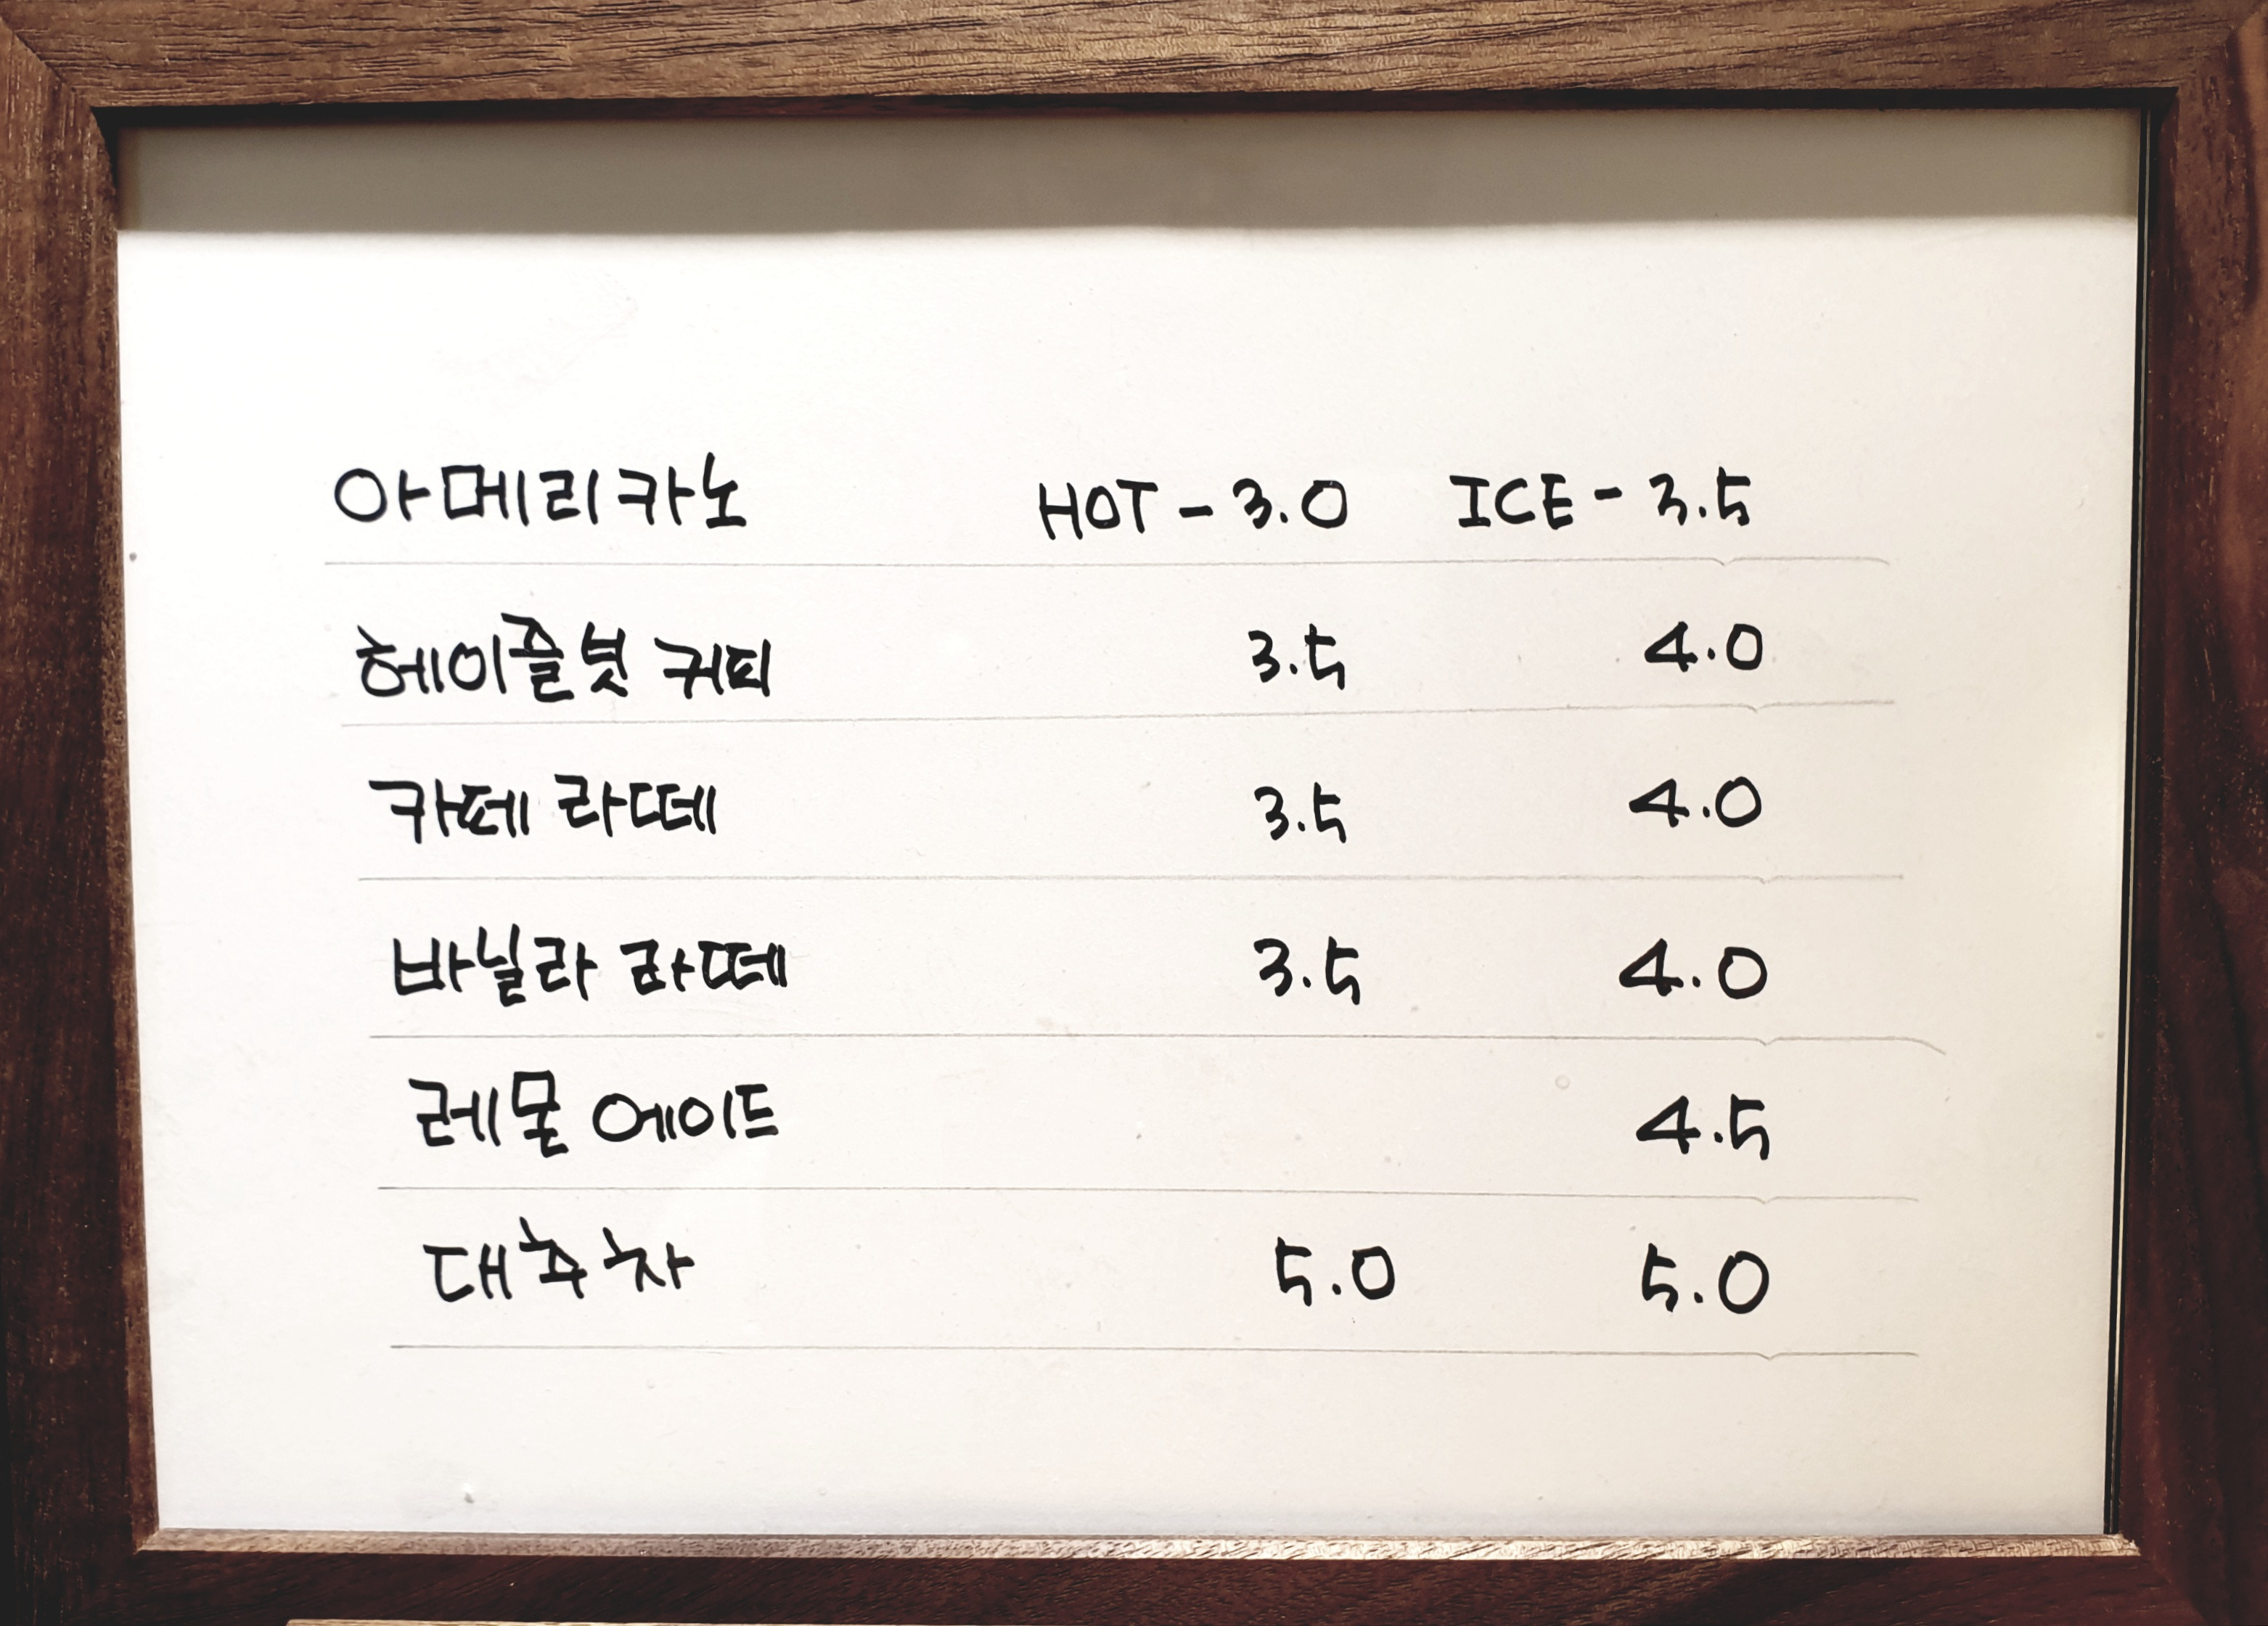 아메리카노 HOT - 3.0 ICE - 3.5
헤이즐넛 커피 3.5 4.0
카페 라떼 3.5 4.0
바닐라 라떼 3.5 4.0
레몬 에이드 4.5
대추차 5.0 5.0